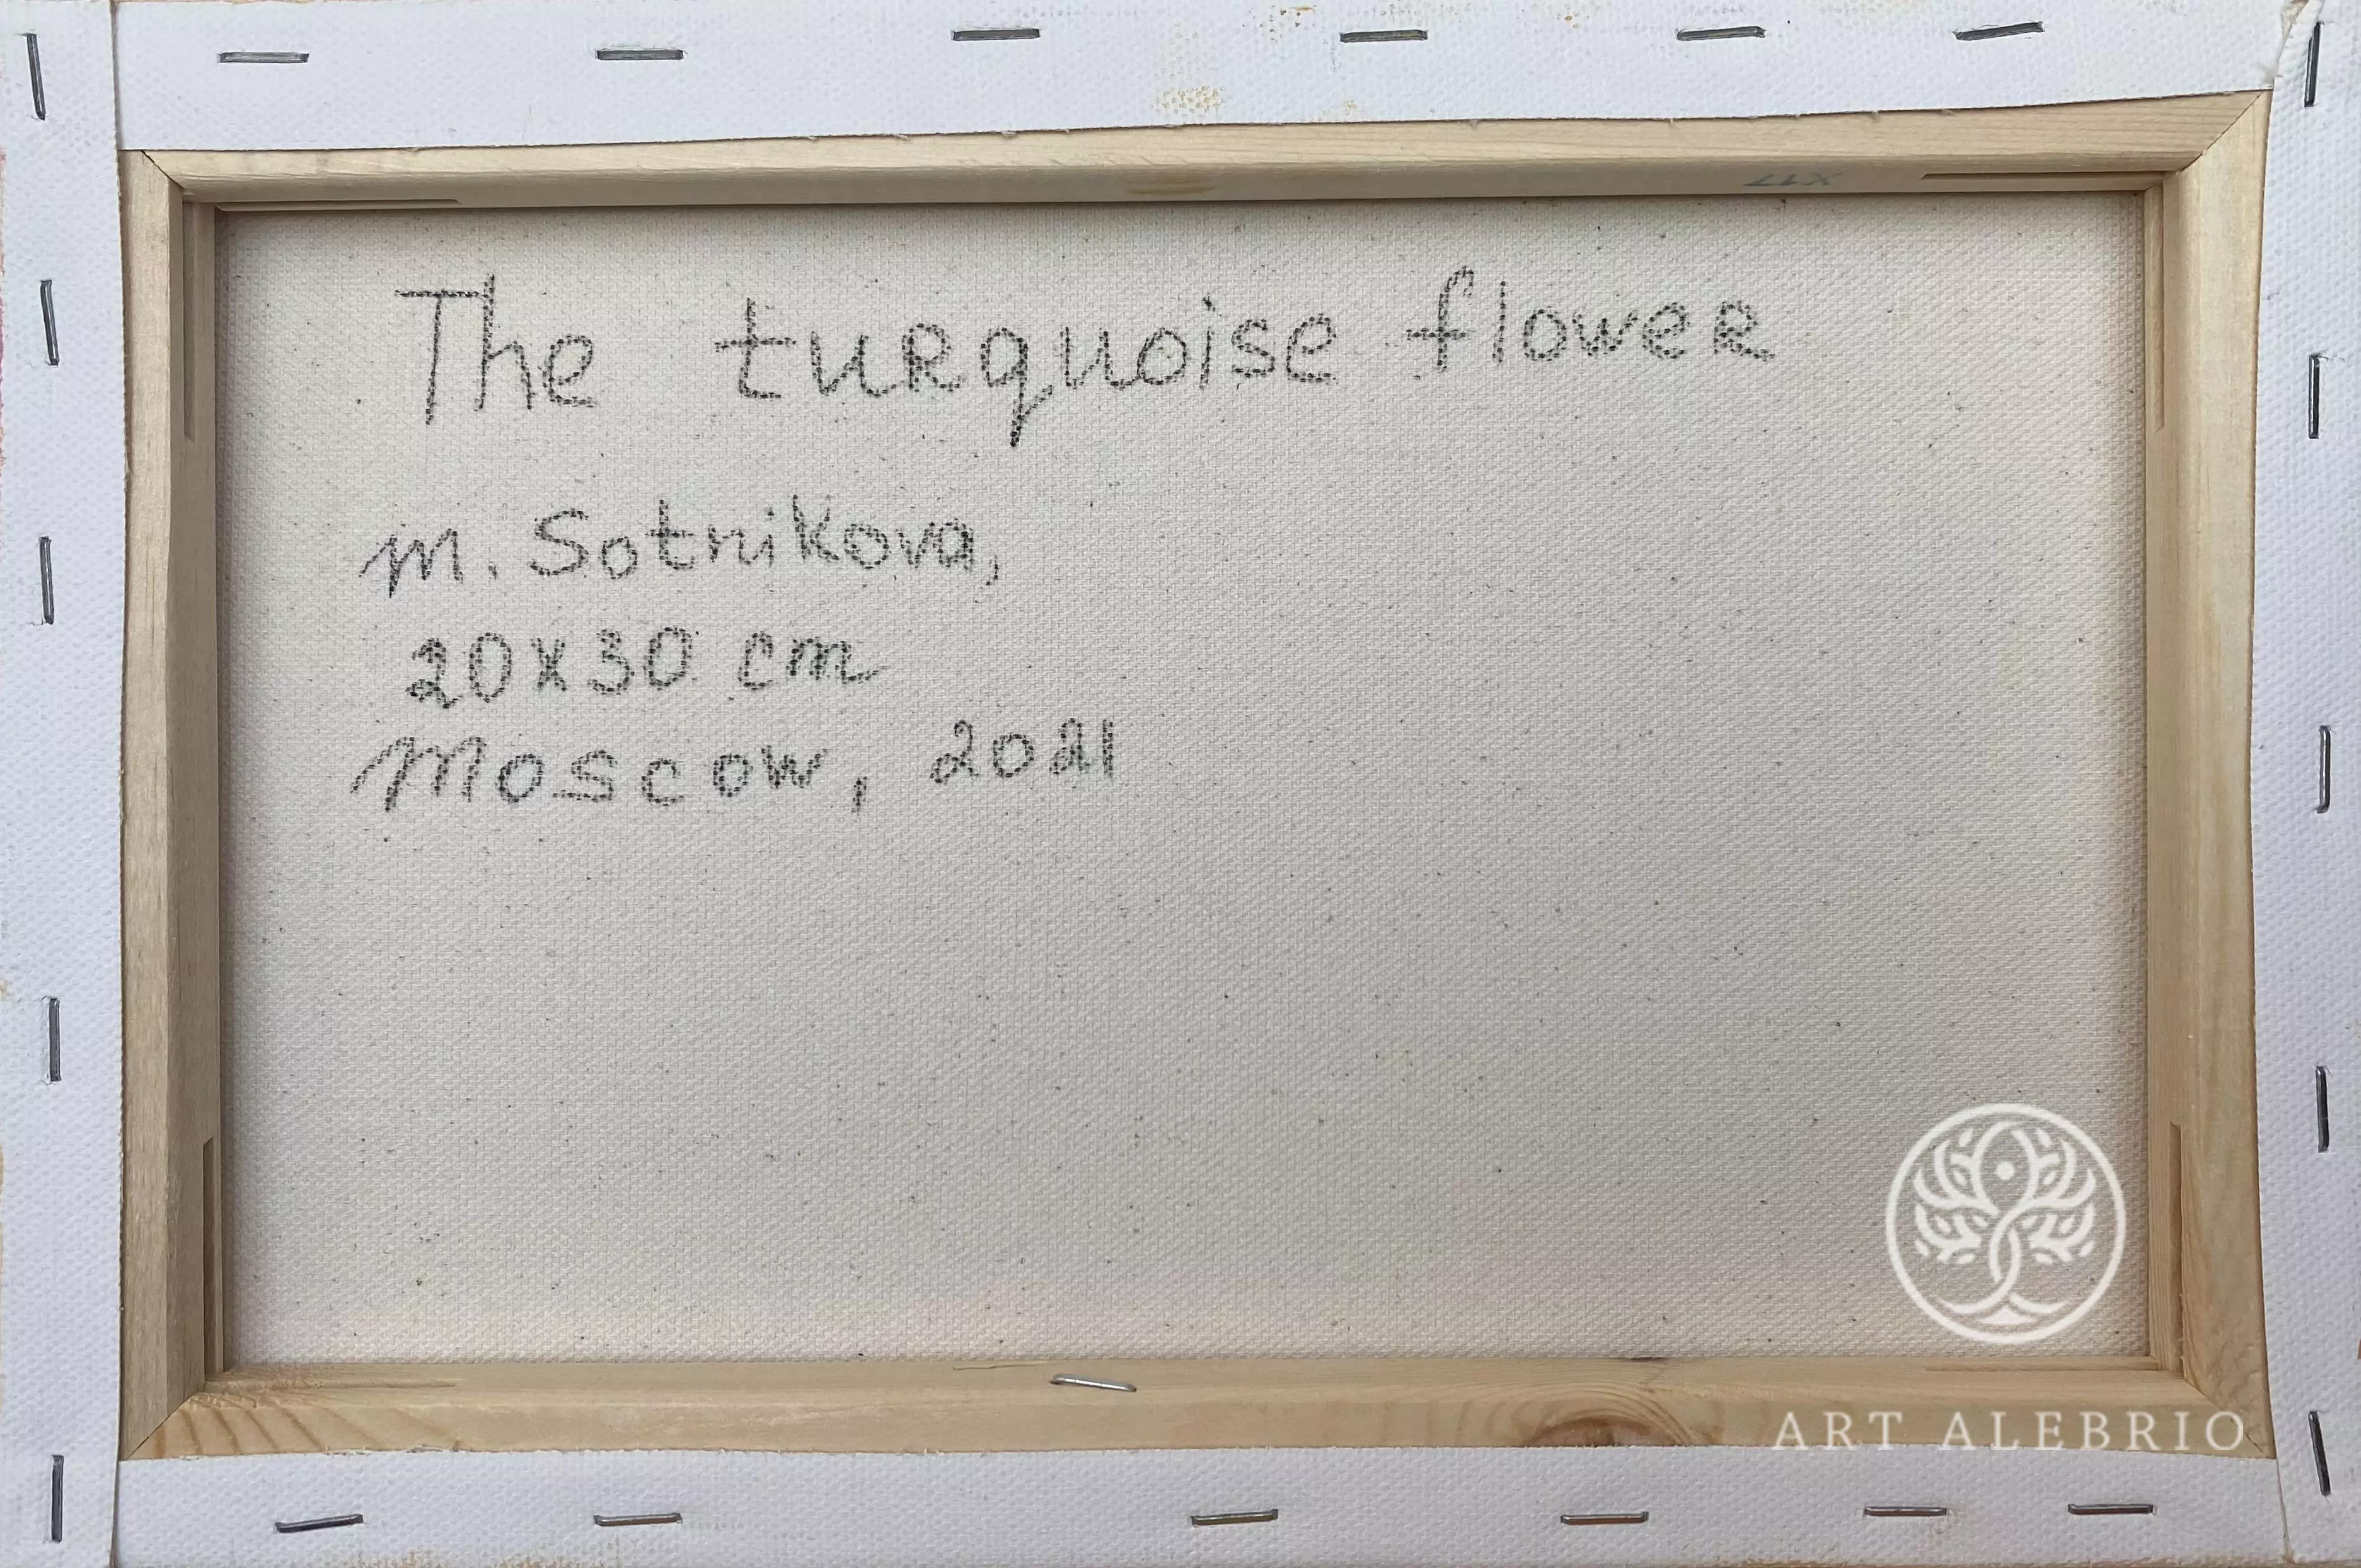 The turquoise flower
M. Sotnikova,
20x30 cm
Moscow, 2021
ART ALEBRIO